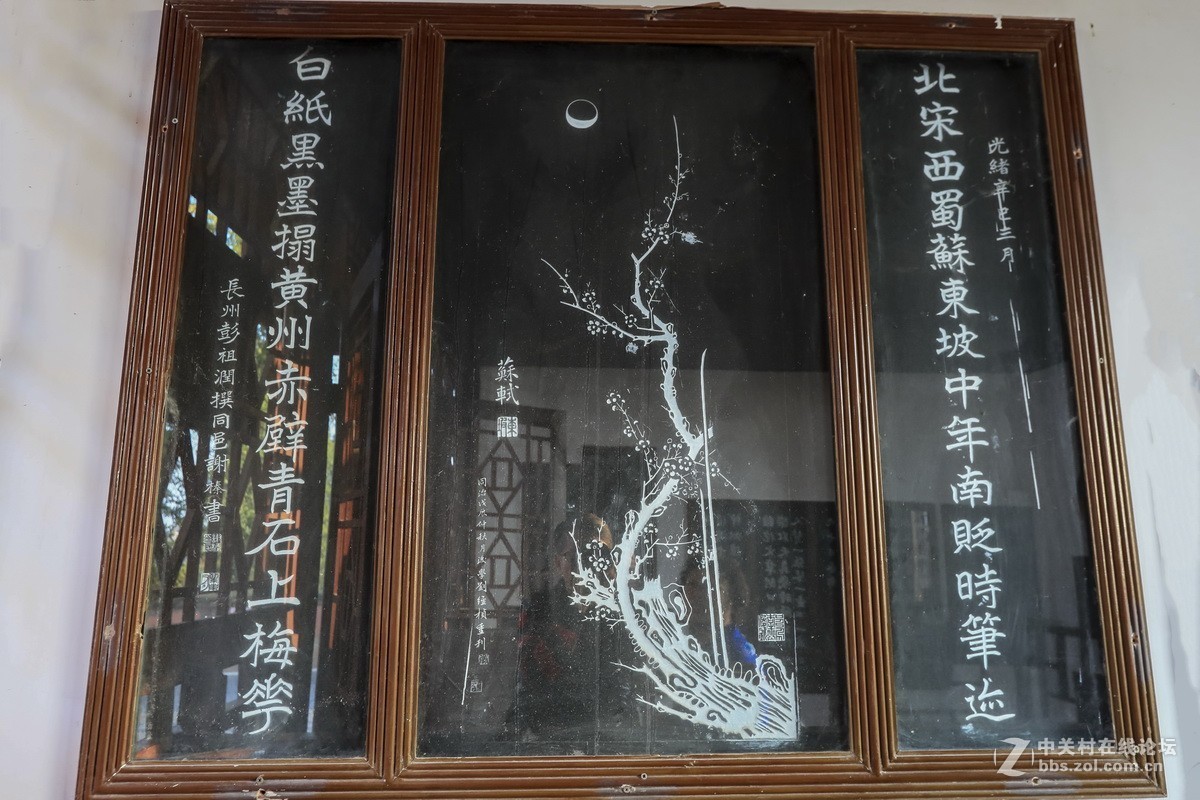 北宋西蜀蘇東坡中年南貶時筆迹
光緒辛巳三月
白紙黑墨搨黃州赤壁青石上梅花
長州彭祖潤撰同邑謝榛書
蘇軾
同治戊辰仲秋月
重刊
中关村在线论坛
bbs.zol.com.cn